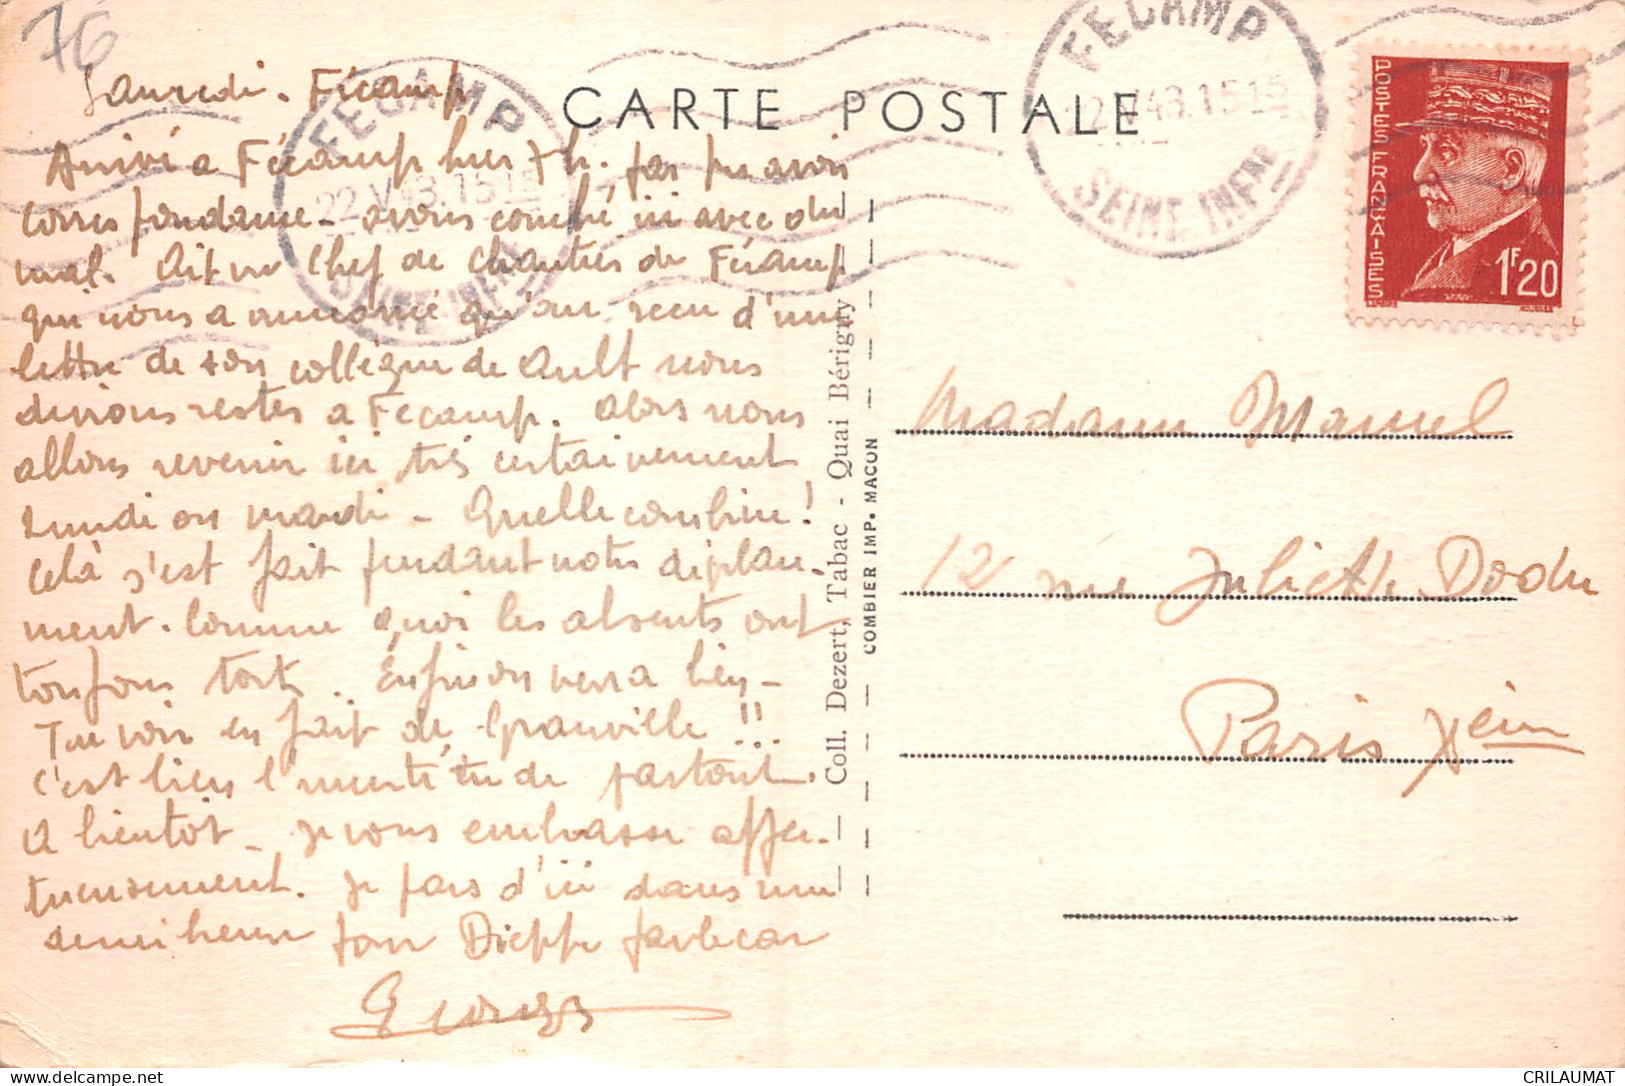 76
Samedi. Fécamp
Arrivé a Fécamp hier 7h. pas pu avoir
correspondance - avons couché ici avec du
mal. Ait vu Chef de Chantier de Fécamp
qui nous a annoncé qu'on reçu d'une
lettre de son collègue de Ault nous
devions rester a Fécamp. Alors nous
allons revenir ici très certainement
Lundi ou mardi - Quelle combine!
Celà s'est fait pendant notre déplace-
ment. Comme quoi les absents ont
toujours tort. Enfin on verra bien -
Tu vois en fait de Granville!!...
c'est bien l'incertitude partout.
A bientôt - je vous embrasse affec-
tueusement. Je pars d'ici dans une
demi heure pour Dieppe par le car
Georges
CARTE POSTALE
FÉCAMP
22 V 43. 15 15
SEINE INFRE
FÉCAMP
22 V 43. 15 15
SEINE INFRE
POSTES FRANÇAISES
1F20
Coll. Dezert, Tabac - Quai Bérigny
COMBIER IMP. MACON
Madame Manuel
12 rue Juliette Dodu
Paris Xèm
CRILAUMAT